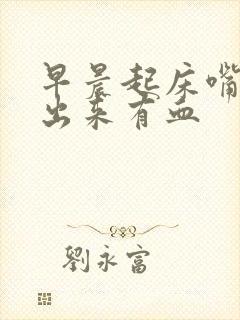 早晨起床嘴
出来有血
劉永富